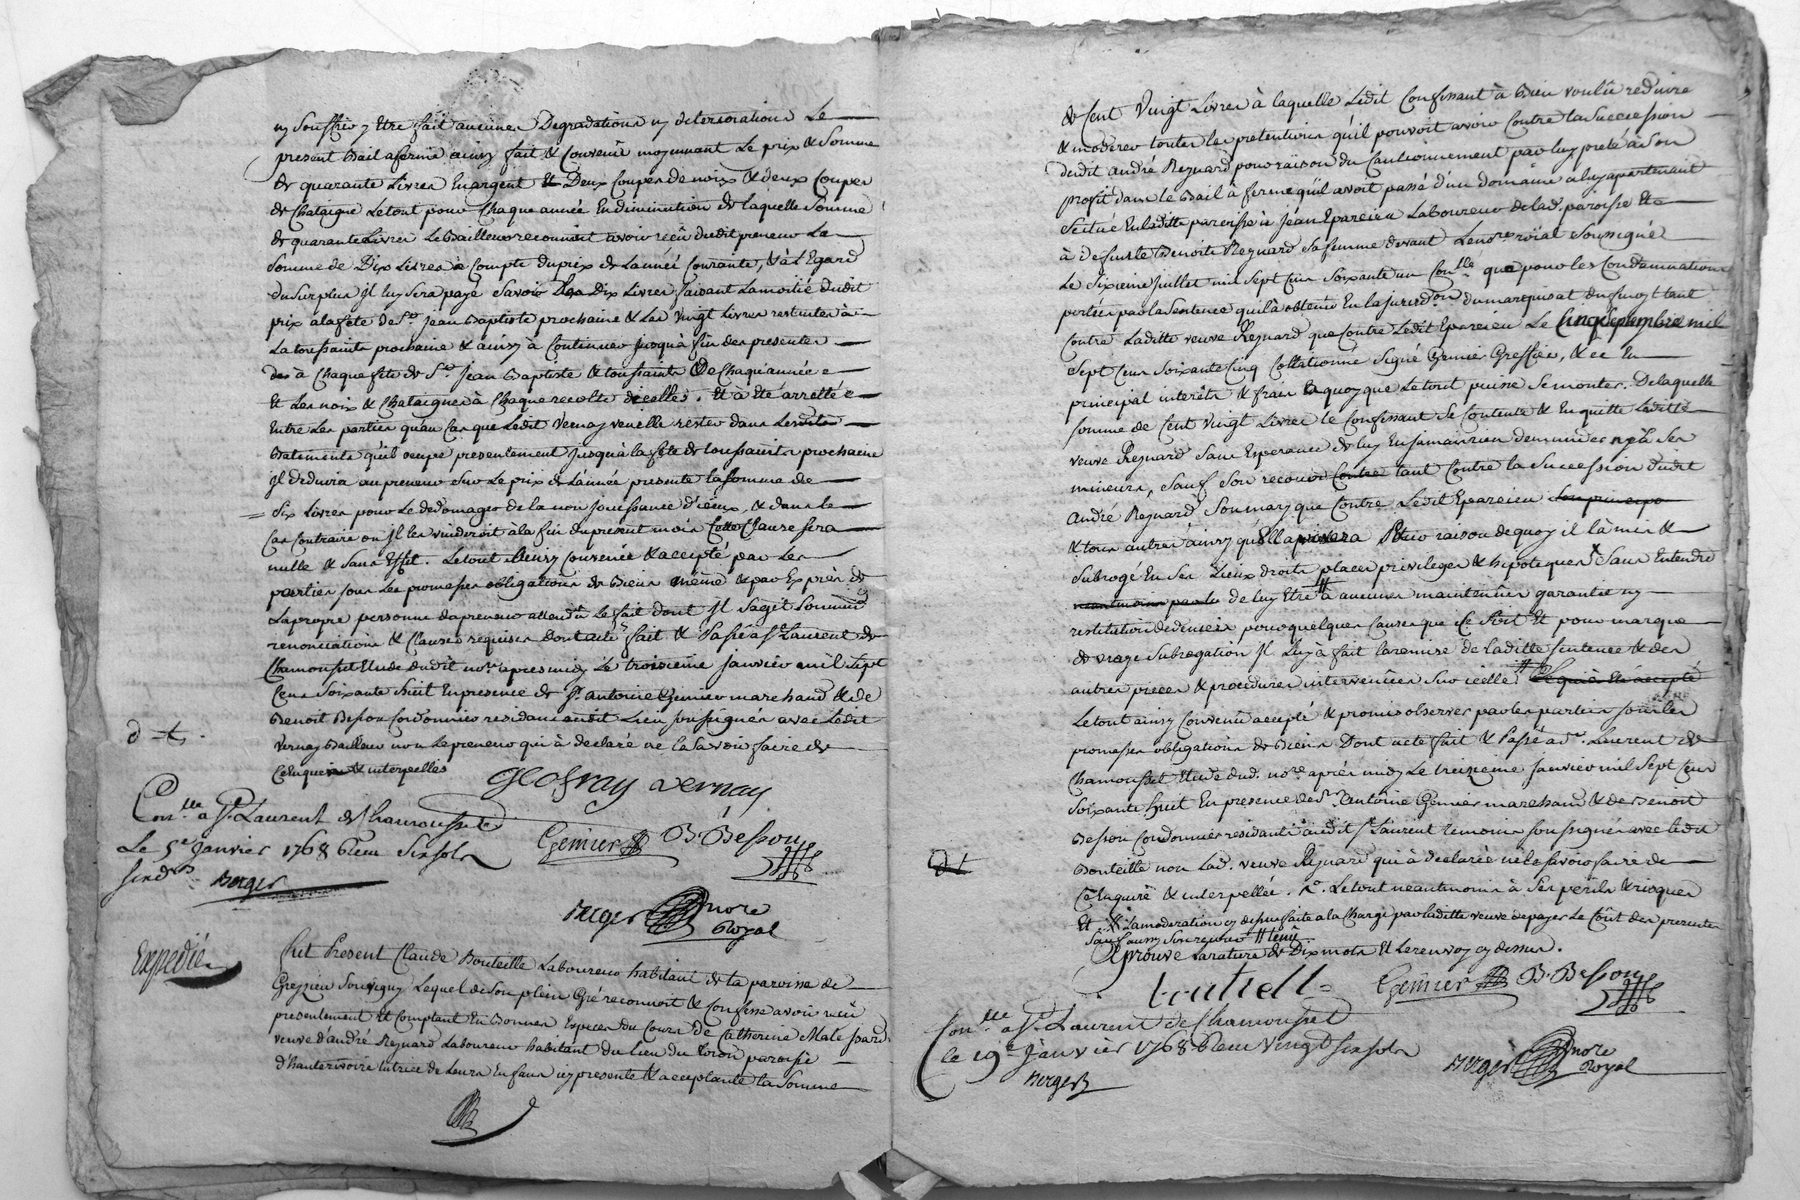 ny souffrir y Etre fait aucunes Degradations ny deteriorations Le
present Bail a ferme ainsy fait & Convenû moyennant Le prix & Somme
de quarante Livres En argent Et Deux Coupes de noix & deux Coupes
de Chataigne Le tout pour Chaque année En diminution de laquelle Somme
de quarante Livres Le Bailleur reconnoit avoir reçû dudit preneur La
Somme de Dix Livres à Compte du prix de Lannée Courante, & à L'Egard
du Surplus jl luy Sera payé Savoir Dix Livres faisant La moitié dudit
prix à la fête de St. Jean Baptiste prochaine & Les Vingt Livres restantes à
La toussaints prochaine & ainsy à Continuer jusqu'à fin des presentes
à Chaque fête de St. Jean Baptiste & toussaints De Chaque année
Et Les noix & Chataignes à Chaque recolte d'icelles. Et à été arretté
Entre Les parties qu'au Cas que Ledit Vernay veuille rester dans Lesdits
Batiments qu'il ocupe presentement jusqu'à la fête de toussaints prochaine
jl déduira au preneur Sur Le prix de L'année presente la Somme de
Six Livres pour Le dedomager de la non jouissance d'iceux, & dans le
Cas Contraire ou jl les vuideroit à la fin du present mois Cette Clause Sera
nulle & Sans Effet. Le tout Ainsy Convenû & accepté par Les
parties sous Les promesses obligations de Biens même & par Exprès de
La propre personne du preneur attendu Le fait dont jl S'agit Soumis
renonciations & Clauses requises Dont acte fait & Passé a St. Laurent de
Chamousset Etude dudit nore. apres midy Le troisieme Janvier mil Sept
Cens Soixante huit En presence de Sr. antoine Gemier marchand & de
Benoit Besson Cordonnier residans audit Lieu soussignés avec Ledit
Vernay Bailleur non Le preneur qui à declaré ne la savoir faire de
Ce Enquis & interpellés
d-t.
Geofray vernay
Conlle. à St. Laurent de Chamousset
Le 5e Janvier 1768 Reçu Six sols
six drs
Berger
Gemier B. Besson
Berger nore
Royal
Expedié
Fut Present Claude Bouteille Laboureur habitant de la paroisse de
Grezieu Souvigny Lequel de Son plein Gré reconnoit & Confesse avoir reçû
presentement Et Comptant En Bonnes Especes du Cours de Catherine Mate
veuve d'andré Reynard Laboureur habitant du Lieu du paroisse
d'hauterivoire tutrice de Leurs Enfans icy presente & acceptante la Somme
de Cent Vingt Livres à laquelle Ledit Confessant à Bien voulû reduire
& moderer toutes les pretentions qu'il pouvoit avoir Contre la Succession
dudit André Reynard pour raison du Cautionnement par luy preté à Son
profit dans le Bail à ferme qu'il avoit passé d'un domaine a luy apartenant
Scitué En ladite paroisse à Jéan Eparcieu Laboureur de lad. paroisse Et
à defunte Benoite Reynard Sa femme devant Le nore. roïal Soussigné
Le Sixieme juillet mil Sept Cens Soixante un Conlle que pour les Condamnations
portées par la Sentence qu'il à obtenu En la jurisdon. du marquisat du tant
Contre Laditte veuve Reynard que Contre Ledit Eparcieu Le Cinq Septembre mil
Sept Cens Soixante Cinq Collationné Signé Gemier Greffier, & ce En
principal interêts & frais a quoy que Le tout puisse Se monter. De laquelle
Somme de Cent Vingt Livres le Confessant Se Contente & En quitte Laditte
veuve Reynard Sans Esperance de luy En jamais rien demander ny à Ses
mineurs, Sauf Son recours tant Contre la Succession dudit
André Reynard Son mary que Contre Ledit Eparcieu
& tous autres ainsy qu'Elle avisera raison de quoy il la mis &
Subrogé En Ses Lieux droits places privileges & hipoteques Sans Entendre
de luy Etre à aucunes maintenües garantie ny
restitution de deniers pour quelques Causes que Ce Soit Et pour marque
de vraye Subrogation jl Luy à fait La remise de Laditte Sentence & des
autres pieces & procedures intervenües Sur icelle
Le tout ainsy Convenû accepté & promis observer par les parties sous les
promesses obligations de Biens Dont acte fait & Passé a St. Laurent de
Chamousset Etude dud. nore. après midy Le treizieme Janvier mil Sept Cens
Soixante huit En presence de Sr. Antoine Gemier marchand & de Benoit
Besson Cordonnier residants audit St. Laurent temoins soussignés avec Ledit
Bouteille non Lad. veuve Reynard qui à declarée ne le savoir faire de
Ce Enquise & interpellée. Le tout neantmoins à Ses perils & risques
Et La moderation cy dessus faite a la Charge par laditte veuve de payer Le Coût des presentes
Sauf aussy Son recours
Aprouvé La rature de Dix mots Et Le renvoy cy dessus.
D t
bouteille
Gemier B. Besson
Conlle. à St. Laurent de Chamousset
Le 19e Janvier 1768 Reçu Vingt six sols
Berger
Berger nore
Royal